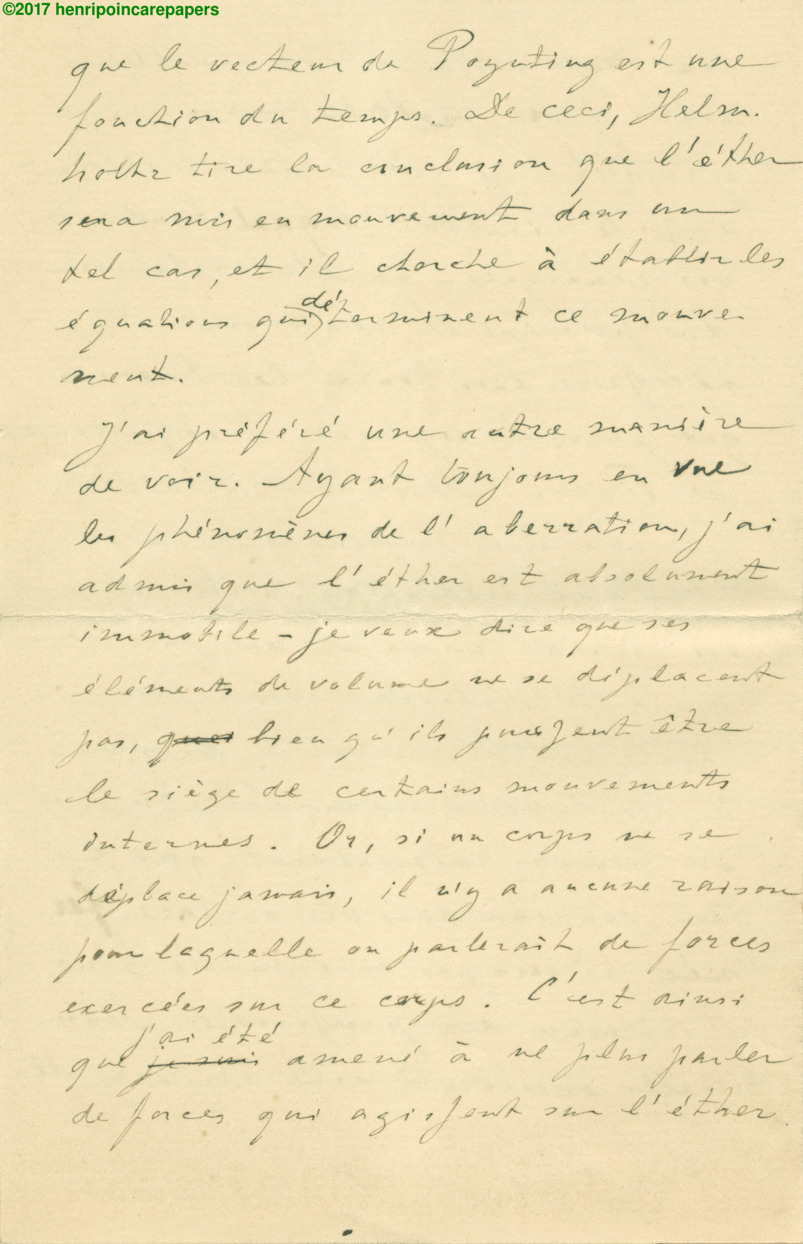 ©2017 henripoincarepapers
que le vecteur de Poynting est une
fonction du temps. De ceci, Helm-
holtz tire la conclusion que l'éther
sera mis en mouvement dans un
tel cas, et il cherche à établir les
équations qui déterminent ce mouve-
ment.
J'ai préféré une autre manière
de voir. Ayant toujours en vue
les phénomènes de l'aberration, j'ai
admis que l'éther est absolument
immobile – je veux dire que ses
éléments de volume ne se déplacent
pas, bien qu'ils puissent être
le siège de certains mouvements
internes. Or, si un corps ne se
déplace jamais, il n'y a aucune raison
pour laquelle on parlerait de forces
exercées sur ce corps. C'est ainsi
j'ai été
que je suis amené à ne plus parler
de forces qui agissent sur l'éther.